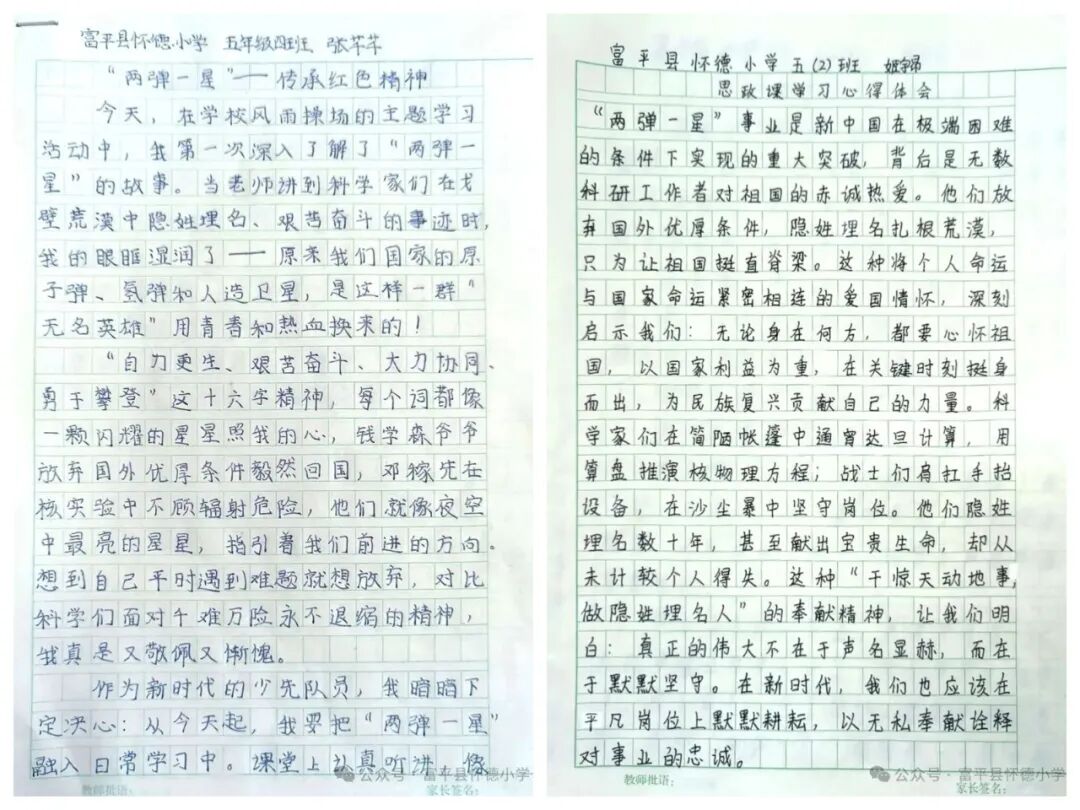 富平县怀德小学 五年级四班 张芊芊
“两弹一星”——传承红色精神
今天，在学校风雨操场的主题学习
活动中，我第一次深入了解了“两弹一
星”的故事。当老师讲到科学家们在戈
壁荒漠中隐姓埋名、艰苦奋斗的事迹时，
我的眼眶湿润了——原来我们国家的原
子弹、氢弹和人造卫星，是这样一群“
无名英雄”用青春和热血换来的！
“自力更生、艰苦奋斗、大力协同、
勇于攀登”这十六字精神，每个词都像
一颗闪耀的星星照我的心，钱学森爷爷
放弃国外优厚条件毅然回国，邓稼先在
核实验中不顾辐射危险，他们就像夜空
中最亮的星星，指引着我们前进的方向。
想到自己平时遇到难题就想放弃，对比
科学们面对千难万险永不退缩的精神，
我真是又敬佩又惭愧。
作为新时代的少先队员，我暗暗下
定决心：从今天起，我要把“两弹一星”
融入日常学习中。课堂上认真听讲，像
教师批语： 家长签名：
富平县怀德小学五(2)班
思政课学习心得体会
“两弹一星”事业是新中国在极端困难
的条件下实现的重大突破，背后是无数
科研工作者对祖国的赤诚热爱。他们放
弃国外优厚条件，隐姓埋名扎根荒漠，
只为让祖国挺直脊梁。这种将个人命运
与国家命运紧密相连的爱国情怀，深刻
启示我们：无论身在何方，都要心怀祖
国，以国家利益为重，在关键时刻挺身
而出，为民族复兴贡献自己的力量。科
学家们在简陋帐篷中通宵达旦计算，用
算盘推演核物理方程；战士们肩扛手抬
设备，在沙尘暴中坚守岗位。他们隐姓
埋名数十年，甚至献出宝贵生命，却从
未计较个人得失。这种“干惊天动地事，
做隐姓埋名人”的奉献精神，让我们明
白：真正的伟大不在于声名显赫，而在
于默默坚守。在新时代，我们也应该在
平凡岗位上默默耕耘，以无私奉献诠释
对事业的忠诚。
教师批语： 家长签名：
公众号·富平县怀德小学
公众号·富平县怀德小学